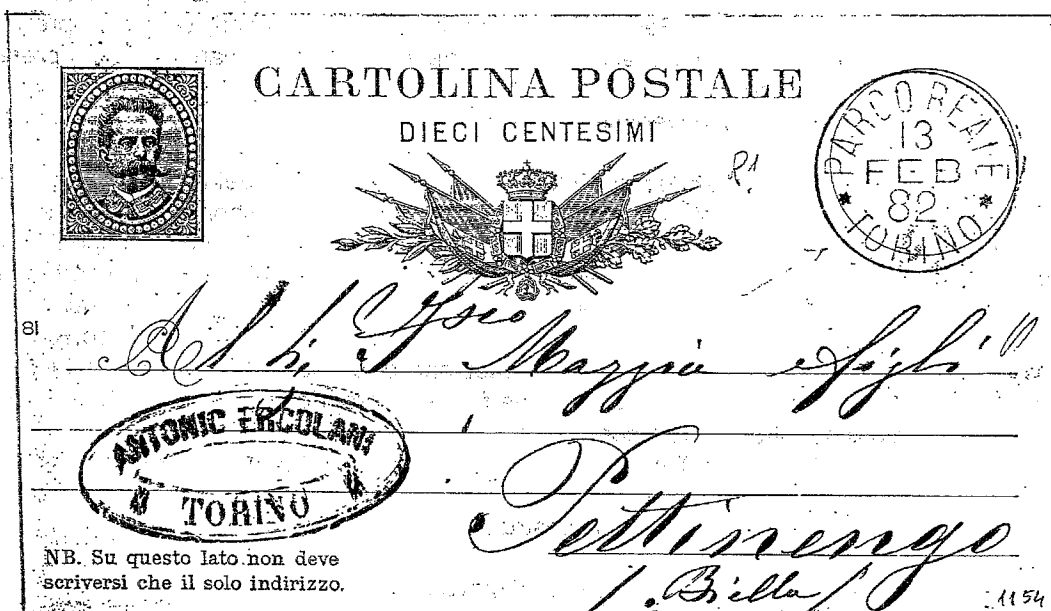 CARTOLINA POSTALE
DIECI CENTESIMI
PARCO REALE
13
FEB
82
TORINO
81
Maggia e figli
ANTONIO ERCOLANI
TORINO
Pettinengo
NB. Su questo lato non deve
scriversi che il solo indirizzo.
(Biella)
1154